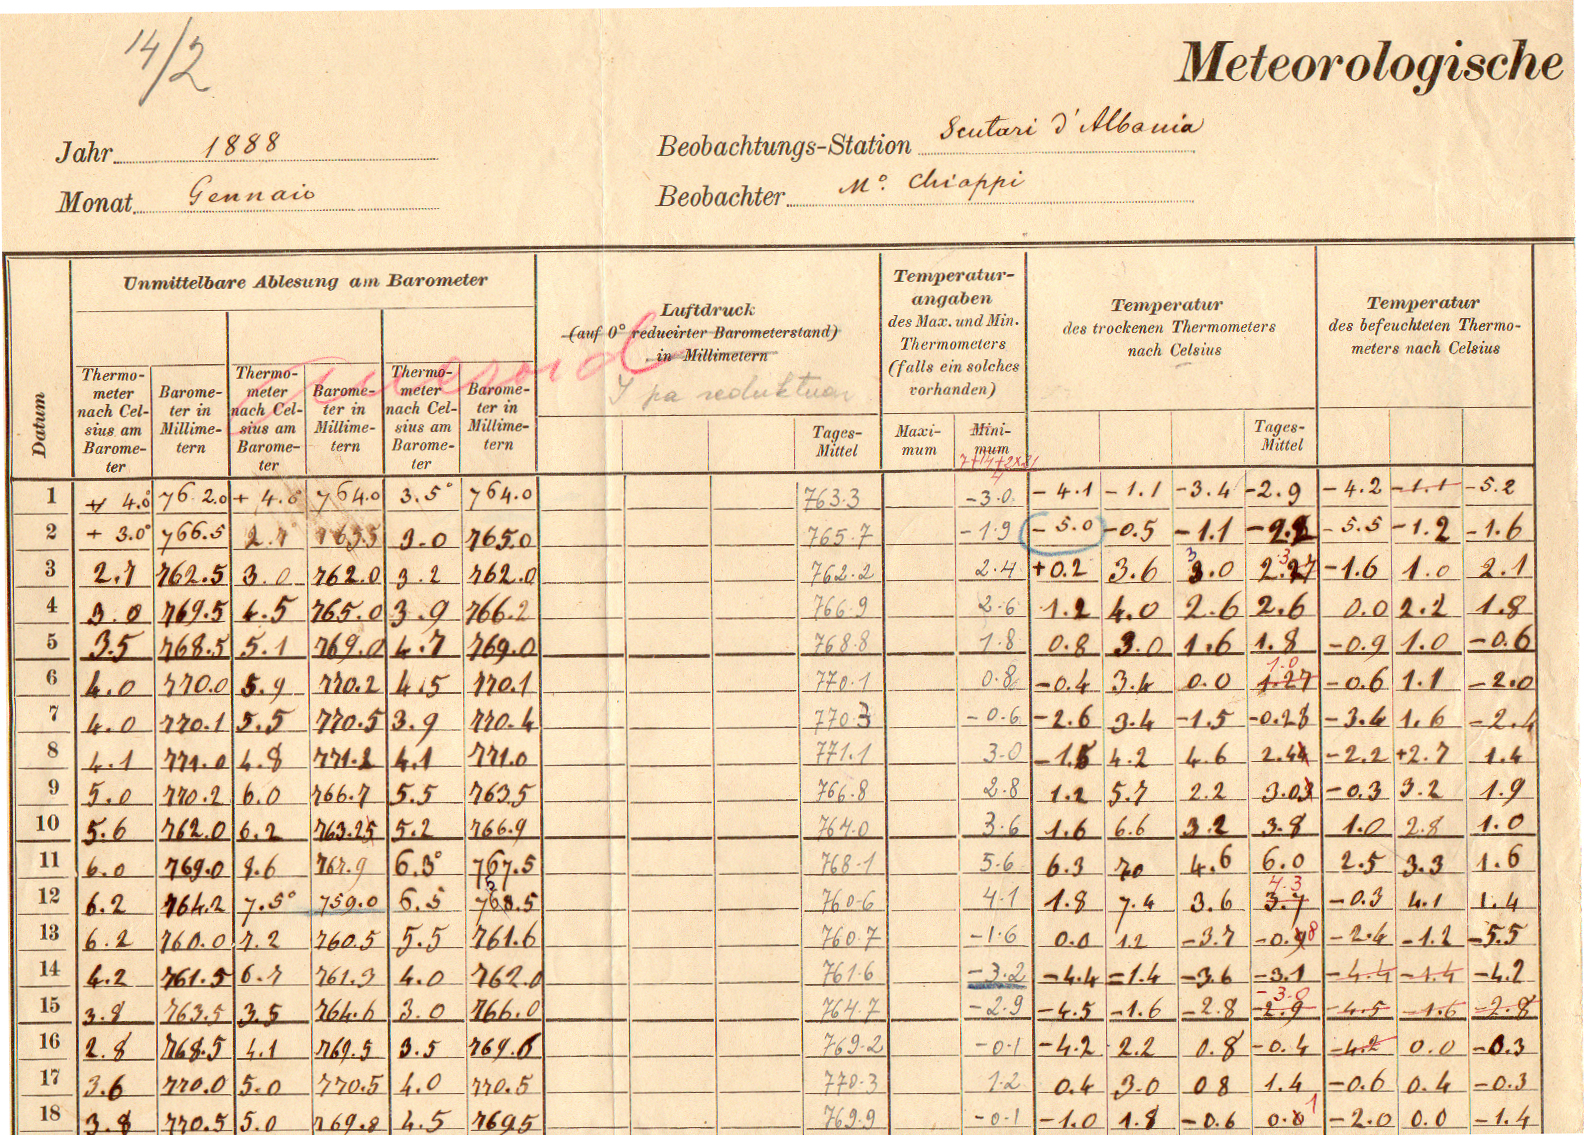 14/2
Meteorologische
Jahr 1888 Beobachtungs-Station Scutari d'Albania
Monat Gennaio Beobachter Mº. Chiappi
Datum
Unmittelbare Ablesung am Barometer
Thermometer nach Celsius am Barometer
Barometer in Millimetern
Thermometer nach Celsius am Barometer
Barometer in Millimetern
Thermometer nach Celsius am Barometer
Barometer in Millimetern
Luftdruck
(auf 0° reducirter Barometerstand)
in Millimetern
Tages-Mittel
Temperatur-
angaben
des Max. und Min.
Thermometers
(falls ein solches
vorhanden)
Maxi-mum
Mini-mum
Temperatur
des trockenen Thermometers
nach Celsius
Tages-Mittel
Temperatur
des befeuchteten Thermo-
meters nach Celsius
1 + 4.0 762.0 + 4.0 764.0 3.5° 764.0 763.3 -3.0 -4.1 -1.1 -3.4 -2.9 -4.2 -1.1 -5.2
2 + 3.0° 766.5 763.5 3.0 765.0 765.7 -1.9 -5.0 -0.5 -1.1 -5.5 -1.2 -1.6
3 2.7 762.5 3.0 762.0 3.2 762.0 762.2 2.4 +0.2 3.6 3.0 -1.6 1.0 2.1
4 3.0 769.5 4.5 765.0 3.9 766.2 766.9 2.6 1.2 4.0 2.6 2.6 0.0 2.2 1.8
5 3.5 768.5 5.1 769.0 4.7 769.0 768.8 1.8 0.8 3.0 1.6 1.8 -0.9 1.0 -0.6
6 4.0 770.0 5.9 770.2 4.5 770.1 770.1 0.8 -0.4 3.4 0.0 1.0 -0.6 1.1 -2.0
7 4.0 770.1 5.5 770.5 3.9 770.4 770.3 -0.6 -2.6 3.4 -1.5 -0.28 -3.4 1.6 -2.4
8 4.1 771.0 4.8 771.2 4.1 771.0 771.1 3.0 -1.5 4.2 4.6 2.44 -2.2 +2.7 1.4
9 5.0 770.2 6.0 766.7 5.5 763.5 766.8 2.8 1.2 5.7 2.2 3.03 -0.3 3.2 1.9
10 5.6 762.0 6.2 763.25 5.2 766.9 764.0 3.6 1.6 6.6 3.2 3.8 1.0 2.8 1.0
11 6.0 769.0 8.6 767.9 6.3° 767.5 768.1 5.6 6.3 7.0 4.6 6.0 2.5 3.3 1.6
12 6.2 764.2 7.5° 759.0 6.5 760.6 4.1 1.8 7.4 3.6 4.3 3.7 -0.3 4.1 1.4
13 6.2 760.0 7.2 760.5 5.5 761.6 760.7 -1.6 0.0 1.2 -3.7 -0.98 -2.4 -1.2 -5.5
14 4.2 761.5 6.7 761.3 4.0 762.0 761.6 -3.2 -4.4 -1.4 -3.6 -3.1 -4.4 -1.4 -4.2
15 3.8 763.5 3.5 764.6 3.0 766.0 764.7 -2.9 -4.5 -1.6 -2.8 -3.0 -2.9 -4.5 -1.6 -2.8
16 2.8 768.5 4.1 769.5 3.5 769.6 769.2 -0.1 -4.2 2.2 0.8 -0.4 -4.2 0.0 -0.3
17 3.6 770.0 5.0 770.5 4.0 770.5 770.3 1.2 0.4 3.0 0.8 1.4 -0.6 0.4 -0.3
18 3.8 770.5 5.0 769.8 4.5 769.5 769.9 -0.1 -1.0 1.8 -0.6 0.1 -2.0 0.0 -1.4